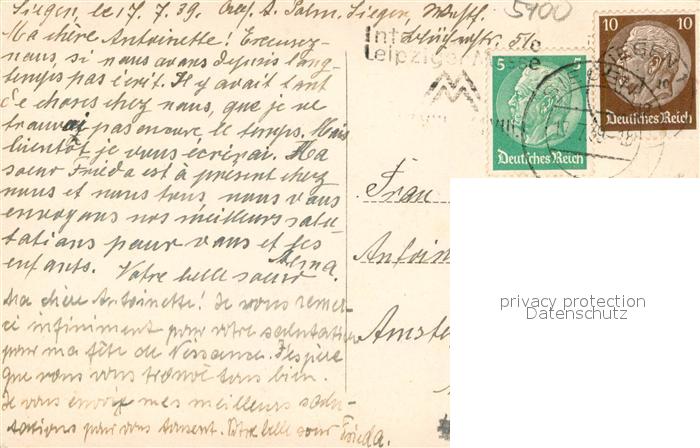 Siegen, le 17. 7. 39. A. Palm, Siegen, Westf.
5400
Ma chère Antoinette! Excusez-
nous, si nous avons depuis long-
temps pas écrit. Il y avait tant
de choses chez nous, que je ne
trouvai pas encore le temps. Mais
bientôt je vous écrirai. Ma
soeur Frieda est à présent chez
nous et nous tous, nous vous
envoyons nos meilleurs salu-
tations pour vous et les
enfants. Votre belle soeur
Alma.
Ma chère Antoinette! Je vous remer-
ci infiniment pour votre salutation
pour ma fête de Nessance. J'espère
que vous vous trouvé tous bien.
Je vous envoie mes meilleurs salu-
tations pour vous Votre belle soeur Frieda.
Int.
Leipziger Messe
5 5
Deutsches Reich
10 10
Deutsches Reich
SIEGEN
Frau
Antoin
Amste
privacy protection
Datenschutz